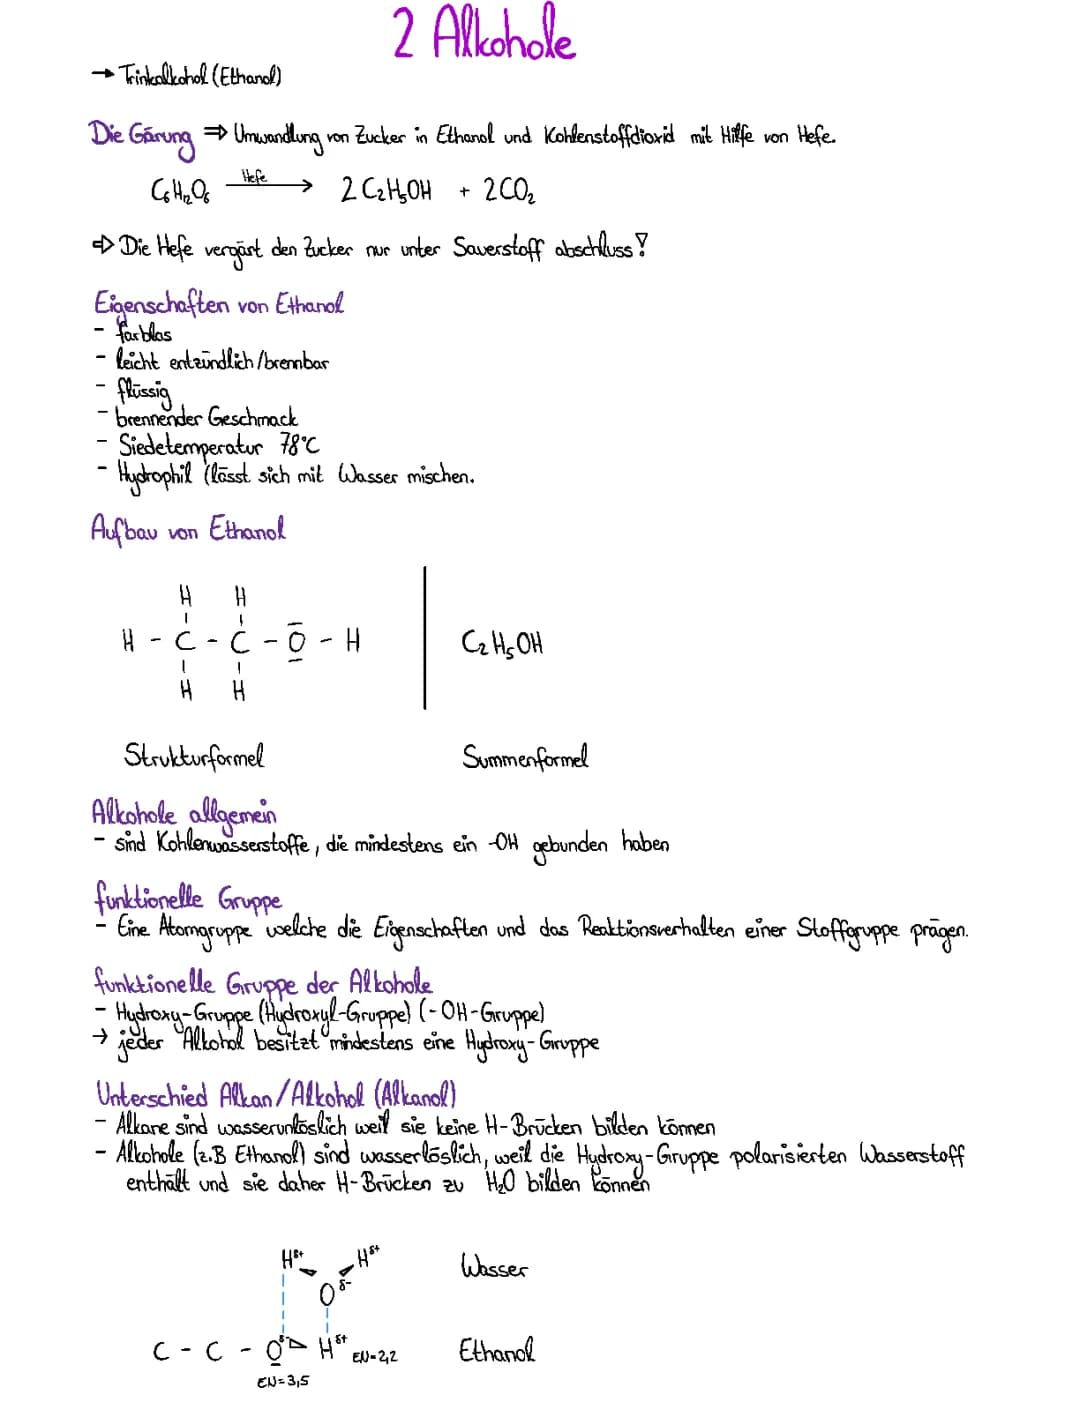 2 Alkohole
→ Trinkalkohol (Ethanol)
Die Gärung ⇒ Umwandlung von Zucker in Ethanol und Kohlenstoffdioxid mit Hilfe von Hefe.
Hefe
C₆H₁₂O₆ ⟶ 2 C₂H₅OH + 2CO₂
⇒ Die Hefe vergärt den Zucker nur unter Sauerstoff abschluss!
Eigenschaften von Ethanol
- farblos
- leicht entzündlich/brennbar
- flüssig
- brennender Geschmack
- Siedetemperatur 78°C
- Hydrophil (lässt sich mit Wasser mischen.
Aufbau von Ethanol
H H
H - C - C - O - H
C₂H₅OH
H H
Strukturformel Summenformel
Alkohole allgemein
- sind Kohlenwasserstoffe, die mindestens ein -OH gebunden haben
funktionelle Gruppe
- Eine Atomgruppe welche die Eigenschaften und das Reaktionsverhalten einer Stoffgruppe prägen.
funktionelle Gruppe der Alkohole
- Hydroxy-Gruppe (Hydroxyl-Gruppe) (-OH-Gruppe)
→ jeder Alkohol besitzt mindestens eine Hydroxy-Gruppe
Unterschied Alkan/Alkohol (Alkanol)
- Alkane sind wasserunlöslich weil sie keine H-Brücken bilden können
- Alkohole (z.B Ethanol) sind wasserlöslich, weil die Hydroxy-Gruppe polarisierten Wasserstoff
enthält und sie daher H-Brücken zu H₂O bilden können
Hδ+ Hδ+ Wasser
Oδ-
C - C - Oδ- Hδ+ EN=2,2 Ethanol
EN=3,5